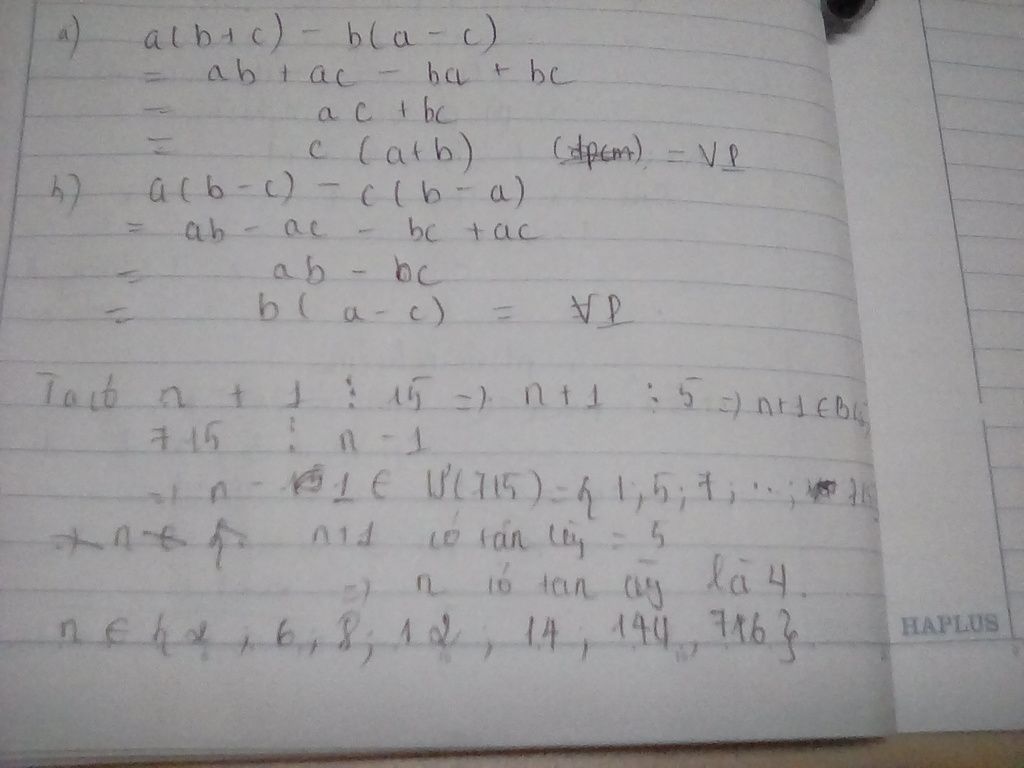 a) a(b+c) - b(a-c)
= ab + ac - ba + bc
= ac + bc
= c (a+b) (đpcm) = VP
b) a(b-c) - c(b-a)
= ab - ac - bc + ac
= ab - bc
= b( a-c) = VP
Ta có n + 1 ⋮ 15 => n+1 ⋮ 5 => n+1 ∈ B(
715 ⋮ n - 1
=> n - 1 ∈ Ư(715) = { 1; 5; 7; ...;
n+1 có tận cùng = 5
=> n có tận cùng là 4.
n ∈ { 2 ; 6 ; 8; 12 ; 14 ; 144 ; 716 }
HAPLUS